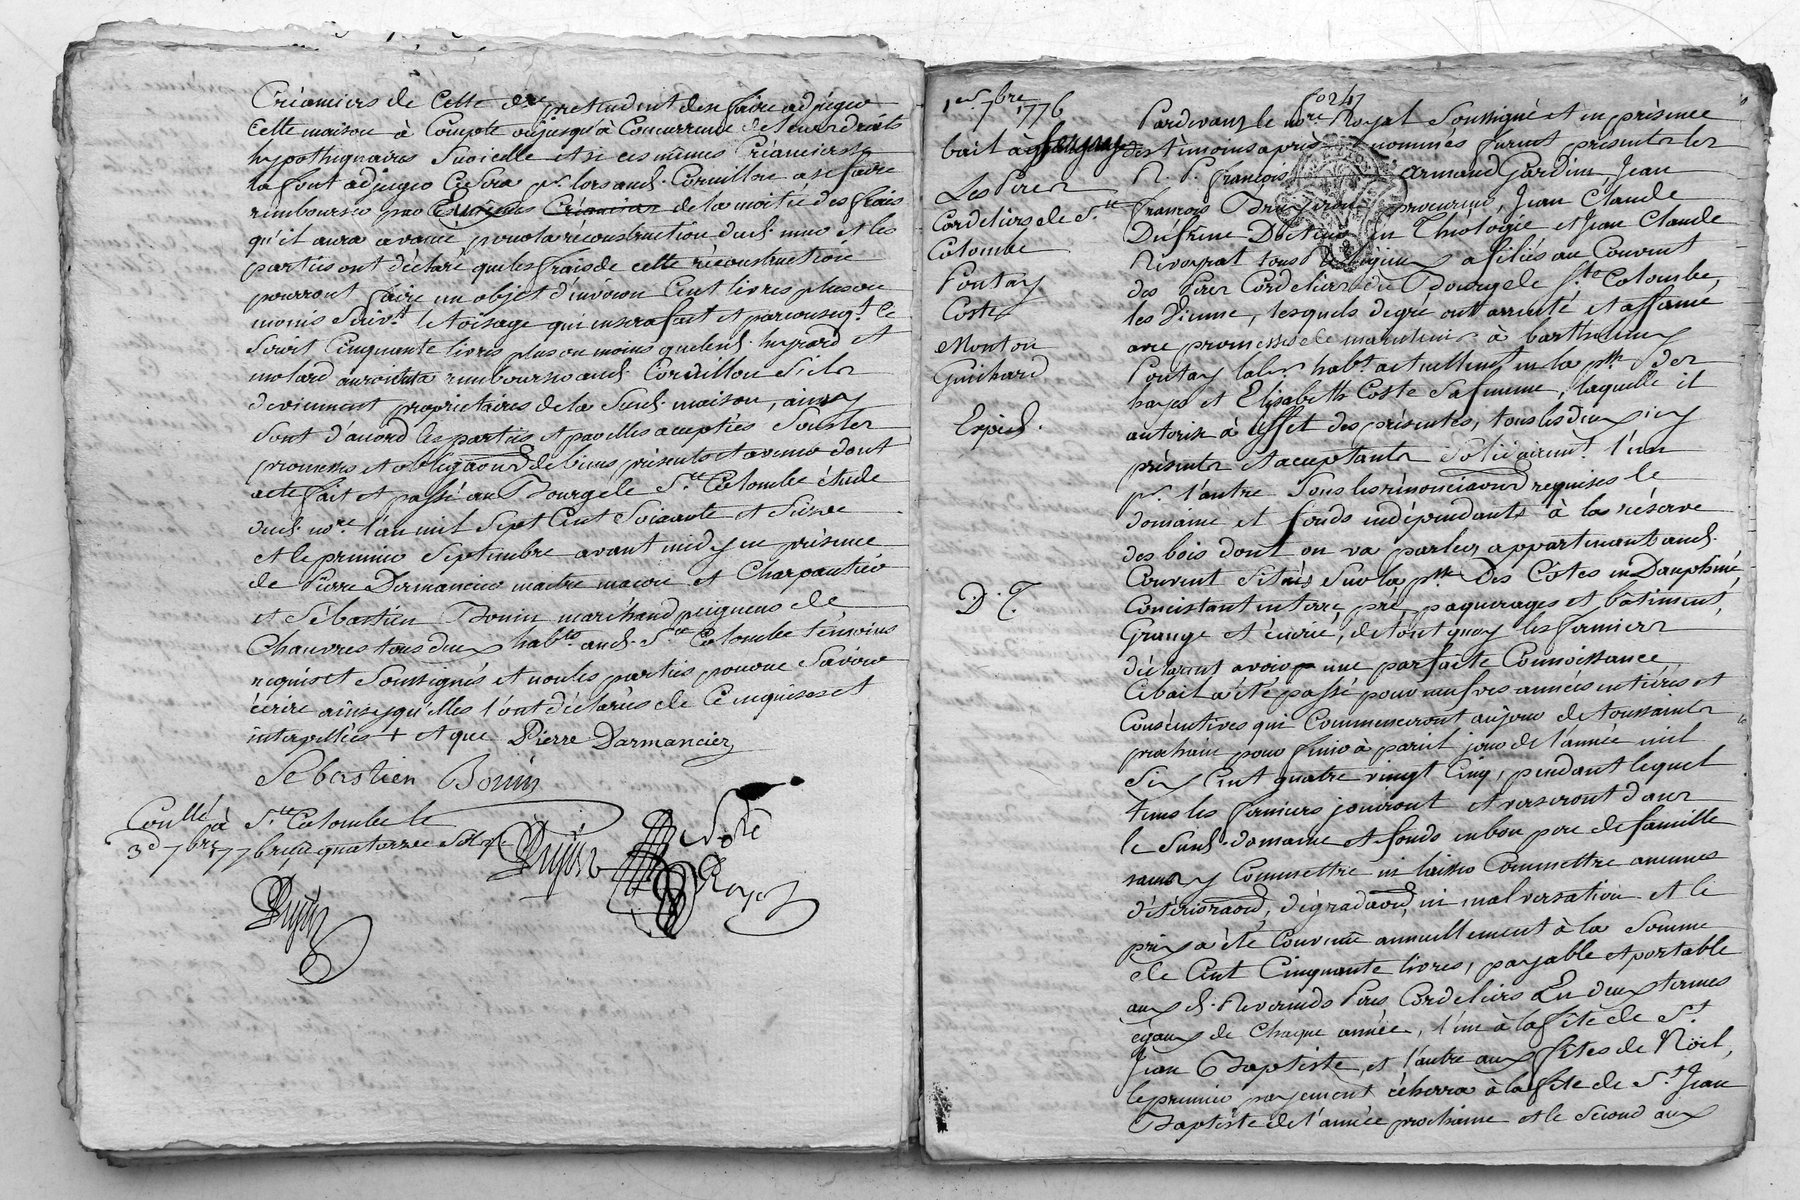 Créanciers de Cette dre pretendent de se faire adjuger
Cette maison à Compte ou jusqu'à Concurrence de leurs droits
hypothéquaires Sur icelle et si ces mêmes Créanciers
la font adjuger Ce sera pr. lors aud. Corvillon a se faire
rembourser par de la moitié des frais
qu'il aura avancé pour la réconstruction dud. mur et les
parties ont déclaré que les frais de cette réconstruction
pourront faire un objet d'environ Cent livres plus ou
moins Suivt. le toisage qui en sera fait et par conseqt. Ce
Seroit Cinquante livres plus ou moins que lesd. huyard et
molard auroient a rembourser aud. Corvillon S'ils
deviennent propriétaires de la Susd. maison, ainsy
Sont d'accord les parties et par elles acceptées Sous les
promesses et obligaons de biens présents et avenir dont
acte fait et passé au Bourg de Ste Colombe étude
dud. nore. l'an mil Sept Cent Soixante et Seize
et le premier Septembre avant midy en présence
de Pierre Dermancier maitre macon et Charpentier
et Sébastien Bonin marchand peigneur de
Chanvres tous deux habts. aud. Ste Colombe témoins
requis et Soussignés et non les parties pour ne Savoir
écrire ainsy qu'elles l'ont déclarées de Ce enquises et
interpellées + et que Pierre Darmancier
Sebastien Bonin
Conllé à Ste Colombe le
3e 7bre 1776 reçu quatorze Sols
Nore
Royal
1er 7bre 1776
bail à ferme
Les Peres
Cordeliers de Ste
Colombe
a
Pontay
Coste
Monton
Guichard
Expéd.
D. T.
fo 247
Pardevant le nore. Royal Soussigné et en présence
des témoins après nommés furent présents les
R. P. François Armand Jardin, Jean
François procureur, Jean Claude
Dufrene Docteur en Théologie et Jean Claude
Rivorpat tous Religieux afiliés au Couvent
des Peres Cordeliers du Bourg de Ste Colombe,
les Vienne, lesquels de gré ont arrenté et affermé
avec promesse de maintenir à barthelemy
Pontay labr. habt. actuellement en la psse. des
hayes et Elisabeth Coste Sa femme, laquelle il
autorise à l'effet des présentes, tous les deux icy
présents et acceptants Solidairemt. l'un
pr. l'autre Sous les rénonciaons requises le
domaine et fonds indépendants à la réserve
des bois dont on va parler appartenant aud.
Couvent Situés Sur la psse. des Côtes en Dauphiné,
Concistant en terre, pré, paquerages et bâtiment,
Grange et écurie, de tout quoy les fermiers
déclarent avoir une parfaite Connoissance
Ce bail a été passé pour neuf vrs années entières et
Consécutives qui Commenceront au jour de toussaints
prochain pour finir à pareil jour de l'année mil
Sept Cent quatre vingt Cinq, pendant lequel
tems les fermiers jouiront et verseront dans
le Susd. domaine et fonds en bon pere de famille
sans y Commettre ni laisser Commettre aucunes
détérioraons, dégradaons, ni malversation et le
prix a été Convenu annuellement à la Somme
de Cent Cinquante livres, payable et portable
aux d. Reverends Peres Cordeliers En deux termes
égaux de Chaque année, l'un à la fête de St.
Jean Baptiste, et l'autre aux fêtes de Noël,
le premier payement écherra à la fête de St. Jean
Baptiste de l'année prochaine et le Second aux